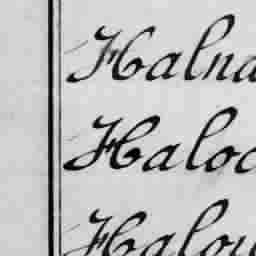 Halna
Haloc
Halow